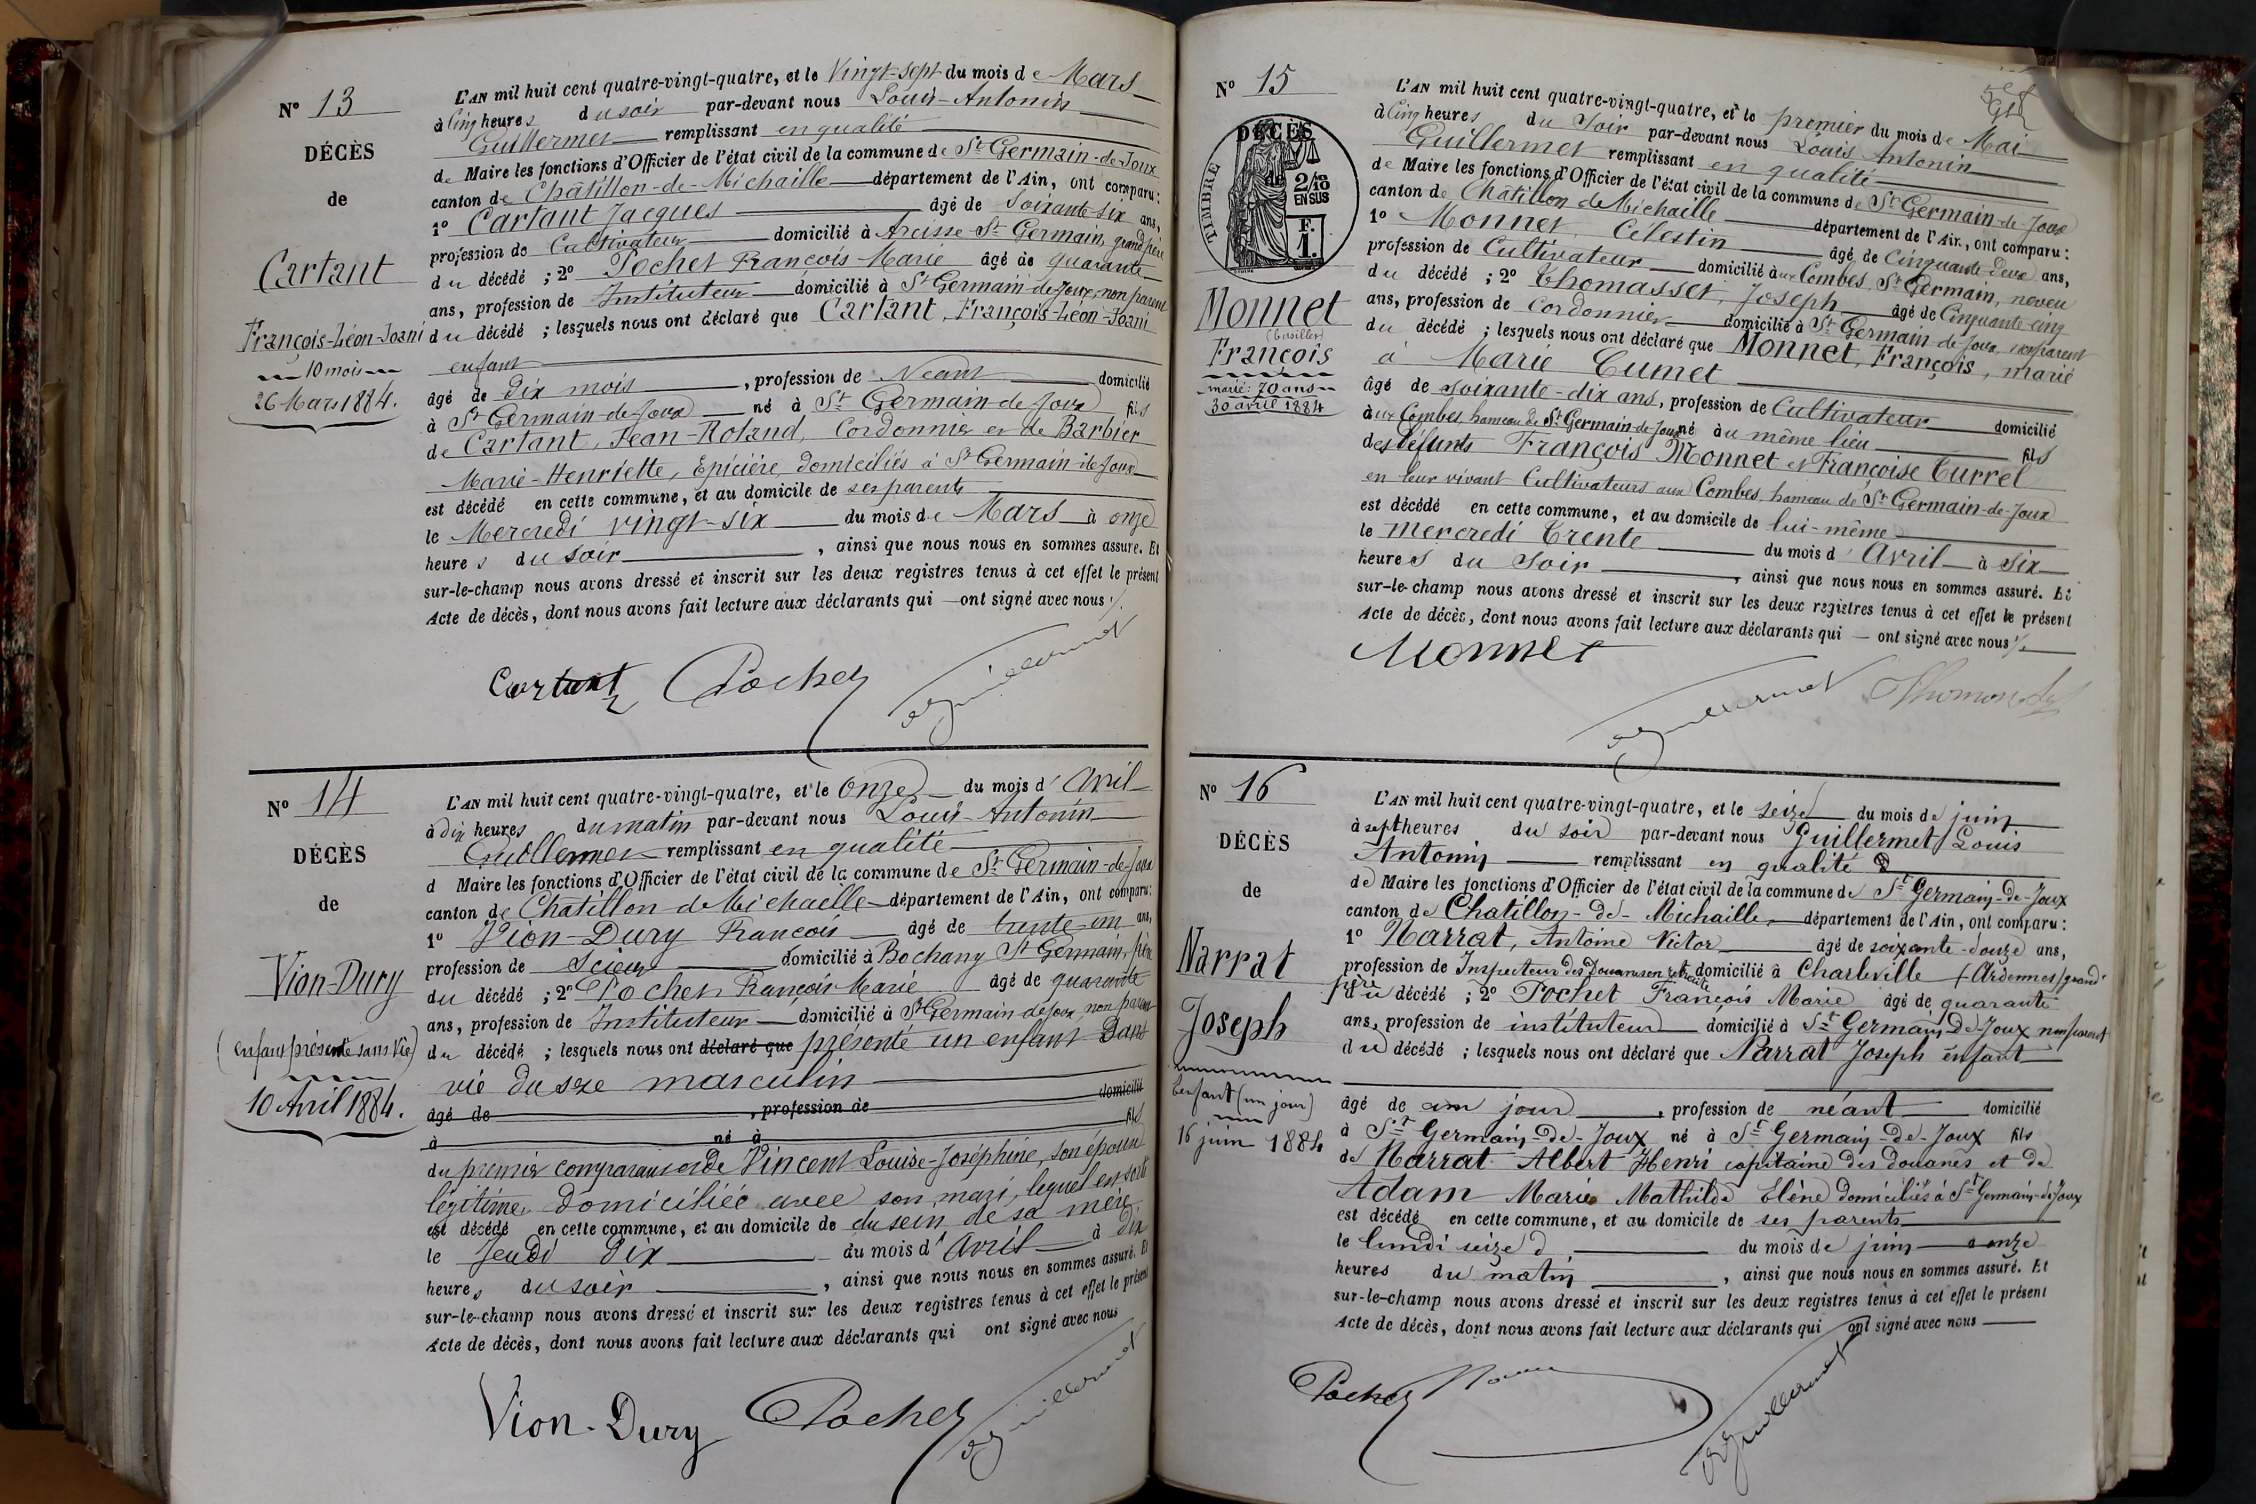 N° 13
DÉCÈS
de
Cartant
François-Léon-Joani
10 mois
26 Mars 1884.
L'AN mil huit cent quatre-vingt-quatre, et le Vingt-sept du mois de Mars
à Cinq heures du soir par-devant nous Louis-Antonin
Guillermet remplissant en qualité
de Maire les fonctions d'Officier de l'état civil de la commune de St Germain-de-Joux
canton de Châtillon-de-Michaille département de l'Ain, ont comparu:
1° Cartant Jacques âgé de Soixante-six ans,
profession de Cultivateur domicilié à St Germain, grand père
du décédé ; 2° Pochet François Marie âgé de quarante
ans, profession de Instituteur domicilié à St Germain-de-Joux, non parent
du décédé ; lesquels nous ont déclaré que Cartant, François-Léon-Joani
enfant
âgé de dix mois, profession de Néant domicilié
à St Germain-de-Joux né à St Germain-de-Joux fils
de Cartant, Jean-Roland, Cordonnier et de Barbier
Marie-Henriette, Epicière, domiciliés à St Germain-de-Joux
est décédé en cette commune, et au domicile de ses parents
le Mercredi vingt-six du mois de Mars à onze
heures du soir, ainsi que nous nous en sommes assuré. Et
sur-le-champ nous avons dressé et inscrit sur les deux registres tenus à cet effet le présent
Acte de décès, dont nous avons fait lecture aux déclarants qui ont signé avec nous
Cartant Pochet Guillermet
N° 14
DÉCÈS
de
Vion-Dury
(enfant présenté sans Vie)
10 Avril 1884.
L'AN mil huit cent quatre-vingt-quatre, et le onze du mois d'Avril
à dix heures du matin par-devant nous Louis-Antonin
Guillermet remplissant en qualité
d Maire les fonctions d'Officier de l'état civil de la commune de St Germain-de-Joux
canton de Châtillon de Michaille département de l'Ain, ont comparu:
1° Vion-Dury François âgé de trente-un ans,
profession de Scieur domicilié à Bochany St Germain, père
du décédé ; 2° Pochet François Marie âgé de quarante
ans, profession de Instituteur domicilié à St Germain-de-Joux, non parent
du décédé ; lesquels nous ont déclaré que présenté un enfant sans
vie du sexe masculin
âgé de, profession de domicilié
à né à fils
du premier comparant et de Vincent Louise-Joséphine, son épouse
légitime, domiciliée avec son mari, lequel est sorti
est décédé en cette commune, et au domicile de du sein de sa mère
le Jeudi dix du mois d'Avril à dix
heures du soir, ainsi que nous nous en sommes assuré. Et
sur-le-champ nous avons dressé et inscrit sur les deux registres tenus à cet effet le présent
Acte de décès, dont nous avons fait lecture aux déclarants qui ont signé avec nous
Vion-Dury Pochet Guillermet
N° 15
DÉCÈS
de
TIMBRE
2/10
EN SUS
F.
1.
Monnet
François
marié: 70 ans
30 avril 1884
L'AN mil huit cent quatre-vingt-quatre, et le premier du mois de Mai
à Cinq heures du Soir par-devant nous Louis Antonin
Guillermet remplissant en qualité
de Maire les fonctions d'Officier de l'état civil de la commune de St Germain-de-Joux
canton de Châtillon de Michaille département de l'Ain, ont comparu:
1° Monnet Célestin âgé de Cinquante deux ans,
profession de Cultivateur domicilié aux Combes, St Germain, neveu
du décédé ; 2° Thomasset, Joseph âgé de Cinquante-cinq
ans, profession de Cordonnier domicilié à St Germain de Joux, non parent
du décédé ; lesquels nous ont déclaré que Monnet, François, marié
à Marie Cumet
âgé de soixante-dix ans, profession de Cultivateur domicilié
aux Combes, hameau de St Germain-de-Joux né au même lieu fils
des défunts François Monnet et Françoise Turrel
en leur vivant Cultivateurs aux Combes, hameau de St Germain-de-Joux
est décédé en cette commune, et au domicile de lui-même
le mercredi trente du mois d'Avril à six
heures du Soir, ainsi que nous nous en sommes assuré. Et
sur-le-champ nous avons dressé et inscrit sur les deux registres tenus à cet effet le présent
Acte de décès, dont nous avons fait lecture aux déclarants qui ont signé avec nous
Monnet Guillermet
N° 16
DÉCÈS
de
Narrat
Joseph
Enfant (un jour)
16 juin 1884
L'AN mil huit cent quatre-vingt-quatre, et le seize du mois de juin
à sept heures du soir par-devant nous Guillermet Louis
Antonin remplissant en qualité
de Maire les fonctions d'Officier de l'état civil de la commune de St Germain-de-Joux
canton de Chatillon-de-Michaille département de l'Ain, ont comparu:
1° Narrat, Antoine Victor âgé de soixante-douze ans,
profession de Inspecteur des Douanes en retraite domicilié à Charleville (Ardennes) grand-
père du décédé ; 2° Pochet François Marie âgé de quarante
ans, profession de instituteur domicilié à St Germain-de-Joux non parent
du décédé ; lesquels nous ont déclaré que Narrat Joseph enfant
âgé de un jour, profession de néant domicilié
à St Germain-de-Joux né à St Germain-de-Joux fils
de Narrat Albert Henri capitaine des douanes et de
Adam Marie Mathilde Elène domiciliés à St Germain-de-Joux
est décédé en cette commune, et au domicile de ses parents
le lundi seize du mois de juin à onze
heures du matin, ainsi que nous nous en sommes assuré. Et
sur-le-champ nous avons dressé et inscrit sur les deux registres tenus à cet effet le présent
Acte de décès, dont nous avons fait lecture aux déclarants qui ont signé avec nous
Pochet Guillermet